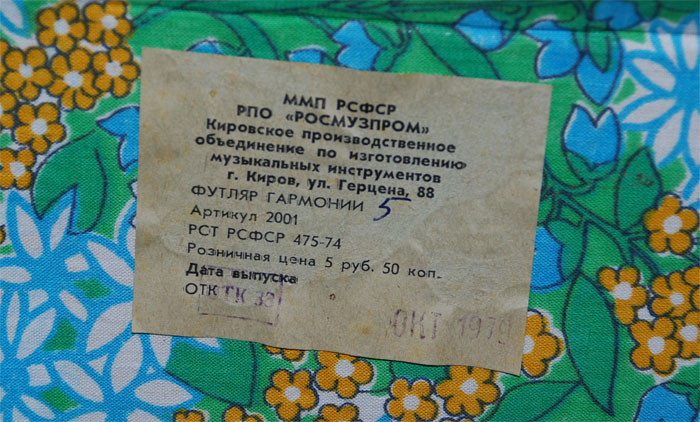 ММП РСФСР
РПО «РОСМУЗПРОМ»
Кировское производственное
объединение по изготовлению
музыкальных инструментов
г. Киров, ул. Герцена, 88
ФУТЛЯР ГАРМОНИИ 5
Артикул 2001
РСТ РСФСР 475-74
Розничная цена 5 руб. 50 коп.
Дата выпуска
ОТК ОТК 33
ОКТ 1979